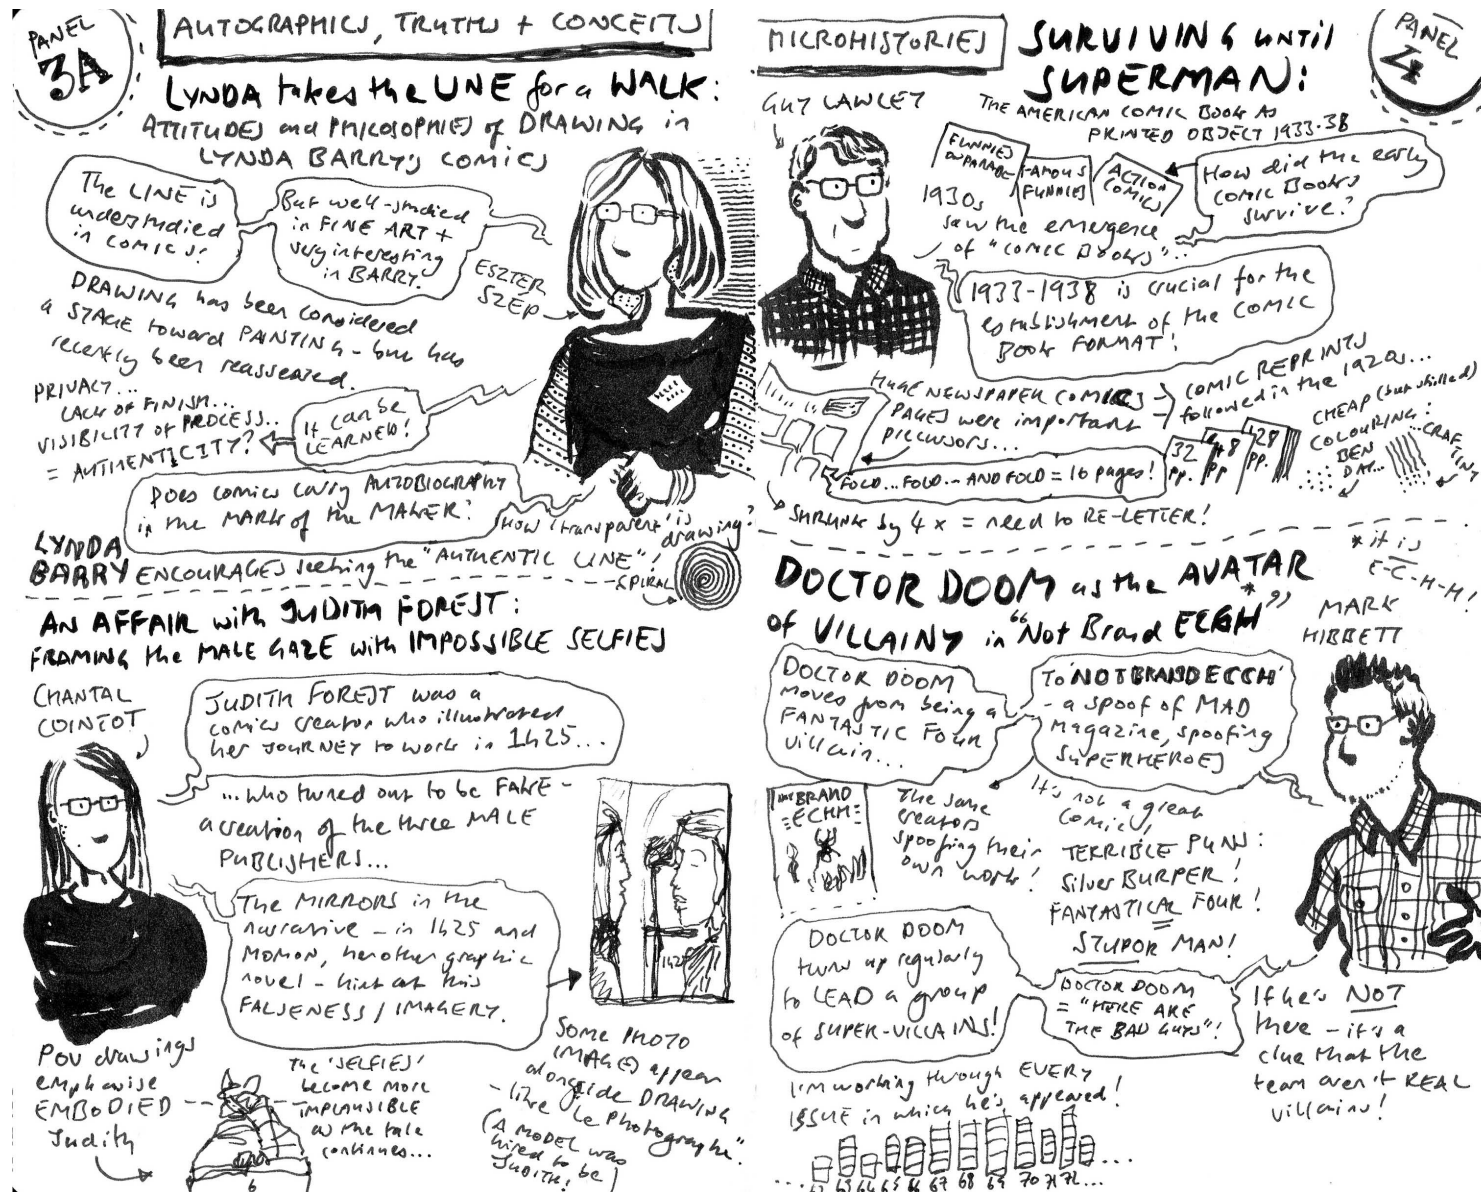 PANEL
3A
AUTOGRAPHICS, TRUTHS + CONCEITS
LYNDA takes the LINE for a WALK:
ATTITUDES and PHILOSOPHIES of DRAWING in
LYNDA BARRY'S COMICS
The LINE is
understudied
in COMICS!
But well-studied
in FINE ART +
very interesting
in BARRY.
ESZTER
SZEP
DRAWING has been considered
a STAGE toward PAINTING - but has
recently been reassessed.
PRIVACY...
LACK OF FINISH...
VISIBILITY OF PROCESS...
= AUTHENTICITY?
It can be
LEARNED!
Does comics carry AUTOBIOGRAPHY
in the MARK of the MAKER?
How 'transparent' is
drawing?
LYNDA
BARRY ENCOURAGES seeking the "AUTHENTIC LINE"!
SPIRAL
AN AFFAIR with JUDITH FOREST:
FRAMING the MALE GAZE with IMPOSSIBLE SELFIES
CHANTAL
COINTOT
JUDITH FOREST was a
comics creator who illustrated
her JOURNEY to work in 1h25...
...who turned out to be FAKE -
a creation of the three MALE
PUBLISHERS...
The MIRRORS in the
narrative - in 1h25 and
MOMON, her other graphic
novel - hint at this
FALSENESS / IMAGERY.
1h25
POV drawings
emphasise
EMBODIED
Judith
The 'SELFIES'
become more
IMPLAUSIBLE
as the tale
continues...
6
SOME PHOTO
IMAGES appear
alongside DRAWING
- like "Le Photographe".
(A MODEL was
hired to be
JUDITH!)
MICROHISTORIES
SURVIVING until
SUPERMAN:
THE AMERICAN COMIC BOOK AS
PRINTED OBJECT 1933-38
PANEL
4
GUY LAWLEY
FUNNIES
ON PARADE
FAMOUS
FUNNIES
ACTION
COMICS
1930s
saw the emergence
of "COMIC BOOKS"...
How did the early
COMIC BOOKS
survive?
1933-1938 is crucial for the
establishment of the COMIC
BOOK FORMAT!
HUGE NEWSPAPER COMICS
PAGES were important
precursors...
COMIC REPRINTS
followed in the 1920s...
32
pp.
48
pp
128
pp.
CHEAP (but skilled)
COLOURING:
BEN
DAY...
CRAFTINT
FOLD... FOLD... AND FOLD = 16 pages!
SHRUNK by 4x = need to RE-LETTER!
DOCTOR DOOM as the AVATAR
of VILLAINY in "Not Brand ECGH*"
* it is
E-C-H-H!
MARK
HIBBETT
DOCTOR DOOM
moves from being a
FANTASTIC FOUR
villain...
To 'NOT BRAND ECCH'
- a spoof of MAD
Magazine, spoofing
SUPERHEROES
BRAND
ECHH
The same
creators
spoofing their
own work!
It's not a great
comic!
TERRIBLE PUNS:
Silver BURPER!
FANTASTICAL FOUR!
STUPOR MAN!
DOCTOR DOOM
turns up regularly
to LEAD a group
of SUPER-VILLAINS!
DOCTOR DOOM
= "HERE ARE
THE BAD GUYS"!
If he's NOT
there - it's a
clue that the
team aren't REAL
villains!
I'm working through EVERY
ISSUE in which he's appeared!
63 64 65 66 67 68 69 70 71 72...